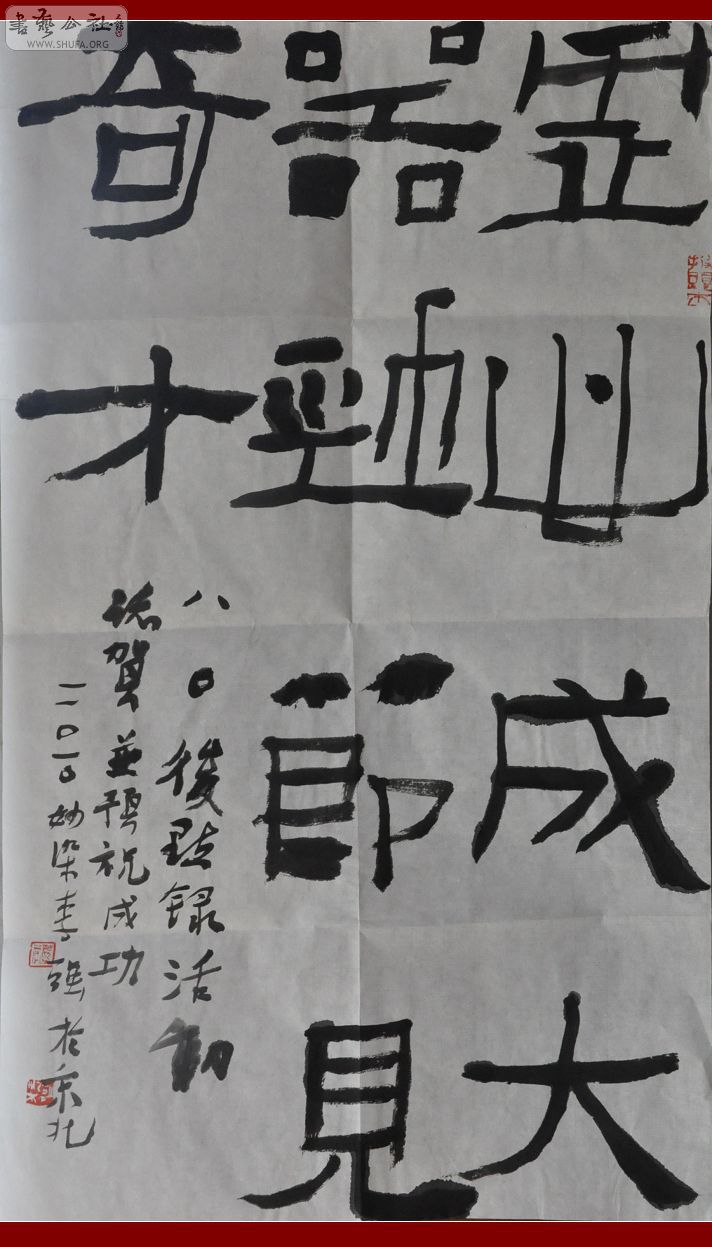 書藝公社
WWW.SHUFA.ORG
虛心成大
器勁節見
奇才
八〇後點錄活動
誌賀並預祝成功
二〇一〇強於京北